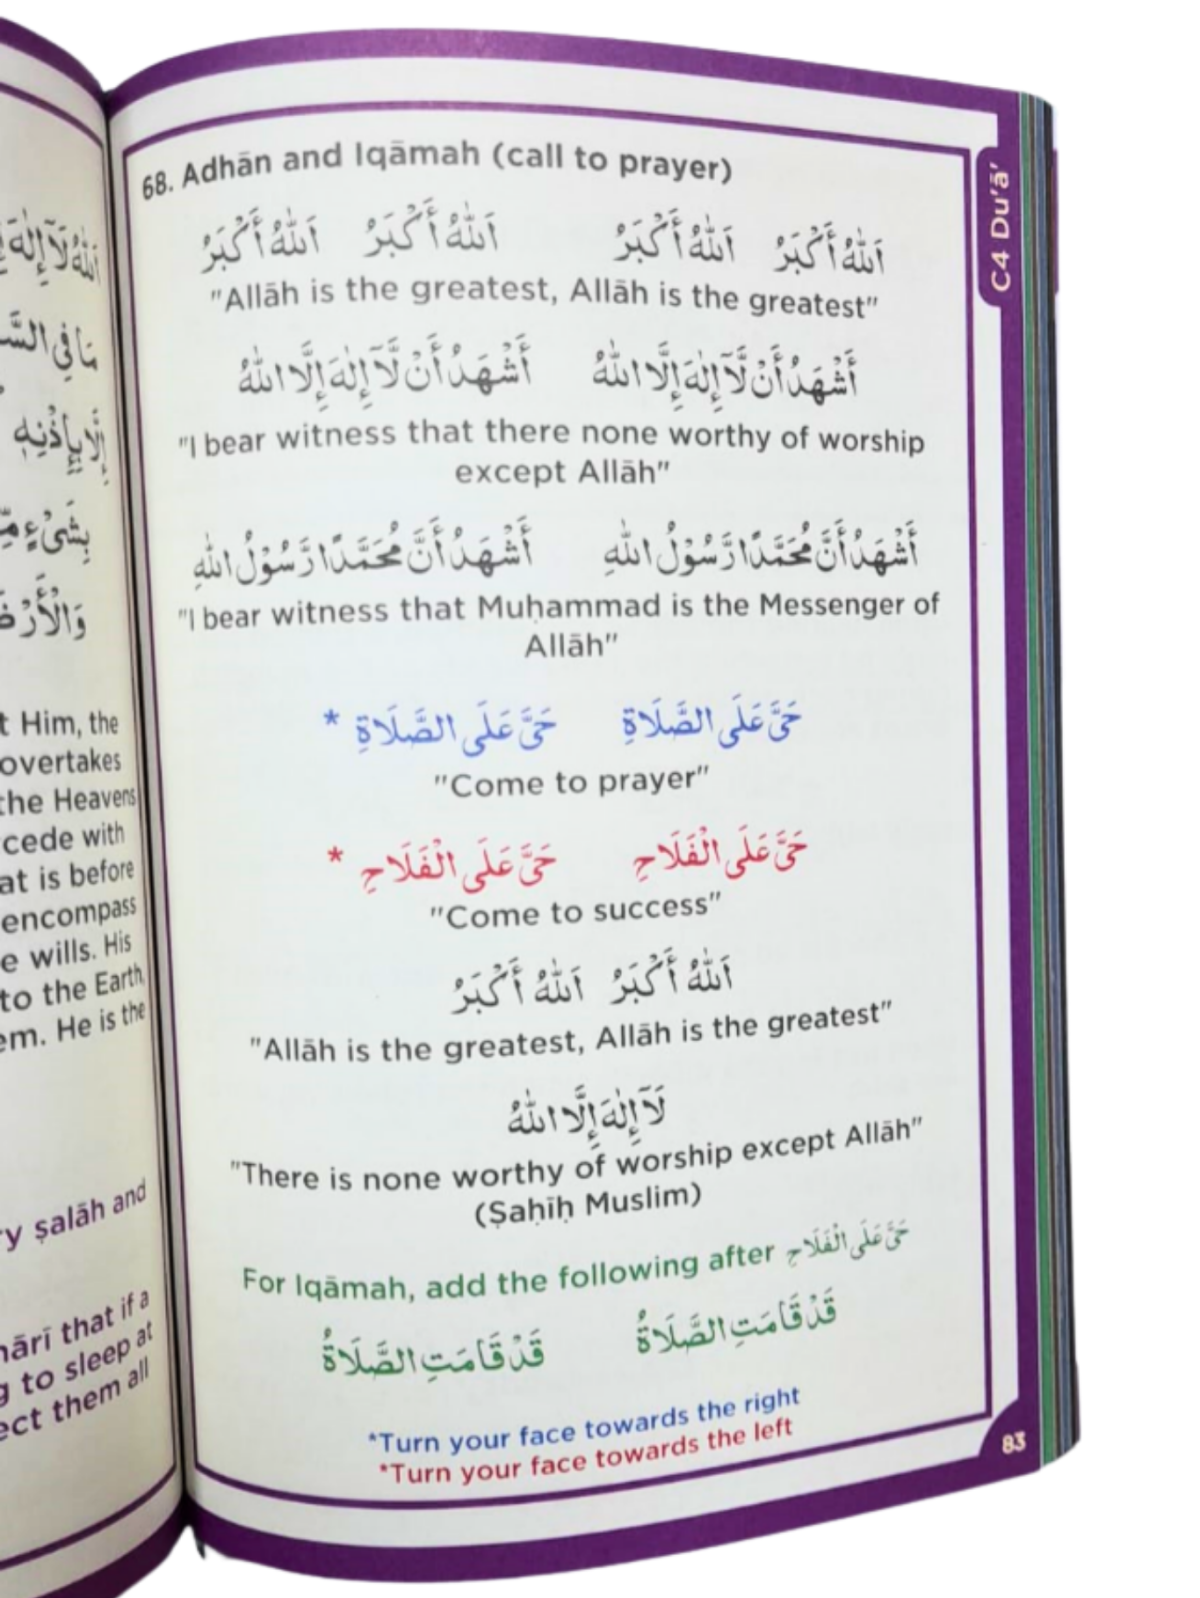 اَللهُ لَآ إِلٰهَ
مَا فِي
إِلَّا بِإِذْنِهِ
بِشَيْءٍ
t Him, the
overtakes
the Heavens
cede with
at is before
encompass
e wills. His
to the Earth,
em. He is the
y ṣalāh and
ārī that if a
to sleep at
ect them all
68. Adhān and Iqāmah (call to prayer)
اَللّٰهُ أَكْبَرُ اَللّٰهُ أَكْبَرُ اَللّٰهُ أَكْبَرُ اَللّٰهُ أَكْبَرُ
"Allāh is the greatest, Allāh is the greatest"
أَشْهَدُ أَنْ لَّآ إِلٰهَ إِلَّا اللّٰهُ أَشْهَدُ أَنْ لَّآ إِلٰهَ إِلَّا اللّٰهُ
"I bear witness that there none worthy of worship
except Allāh"
أَشْهَدُ أَنَّ مُحَمَّدًا رَّسُوْلُ اللّٰهِ أَشْهَدُ أَنَّ مُحَمَّدًا رَّسُوْلُ اللّٰهِ
"I bear witness that Muḥammad is the Messenger of
Allāh"
حَيَّ عَلَى الصَّلَاةِ حَيَّ عَلَى الصَّلَاةِ *
"Come to prayer"
حَيَّ عَلَى الْفَلَاحِ حَيَّ عَلَى الْفَلَاحِ *
"Come to success"
اَللّٰهُ أَكْبَرُ اَللّٰهُ أَكْبَرُ
"Allāh is the greatest, Allāh is the greatest"
لَآ إِلٰهَ إِلَّا اللّٰهُ
"There is none worthy of worship except Allāh"
(Ṣaḥīḥ Muslim)
For Iqāmah, add the following after حَيَّ عَلَى الْفَلَاحِ
قَدْ قَامَتِ الصَّلَاةُ قَدْ قَامَتِ الصَّلَاةُ
*Turn your face towards the right
*Turn your face towards the left
C4 Du'ā'
83